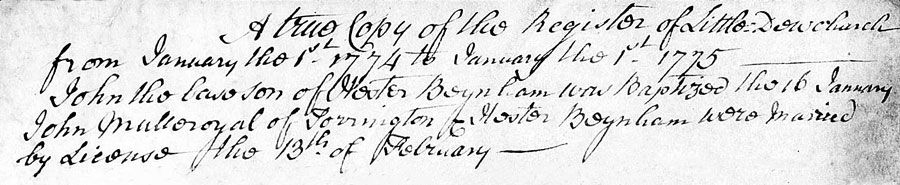 A true Copy of the Register of Little-Dewchurch
from January the 1st 1774 to January the 1st 1775
John the base son of Hester Beynham was Baptized the 16 January
John Mulleroyal of Torrington & Hester Beynham were Maried
by License the 13th of February